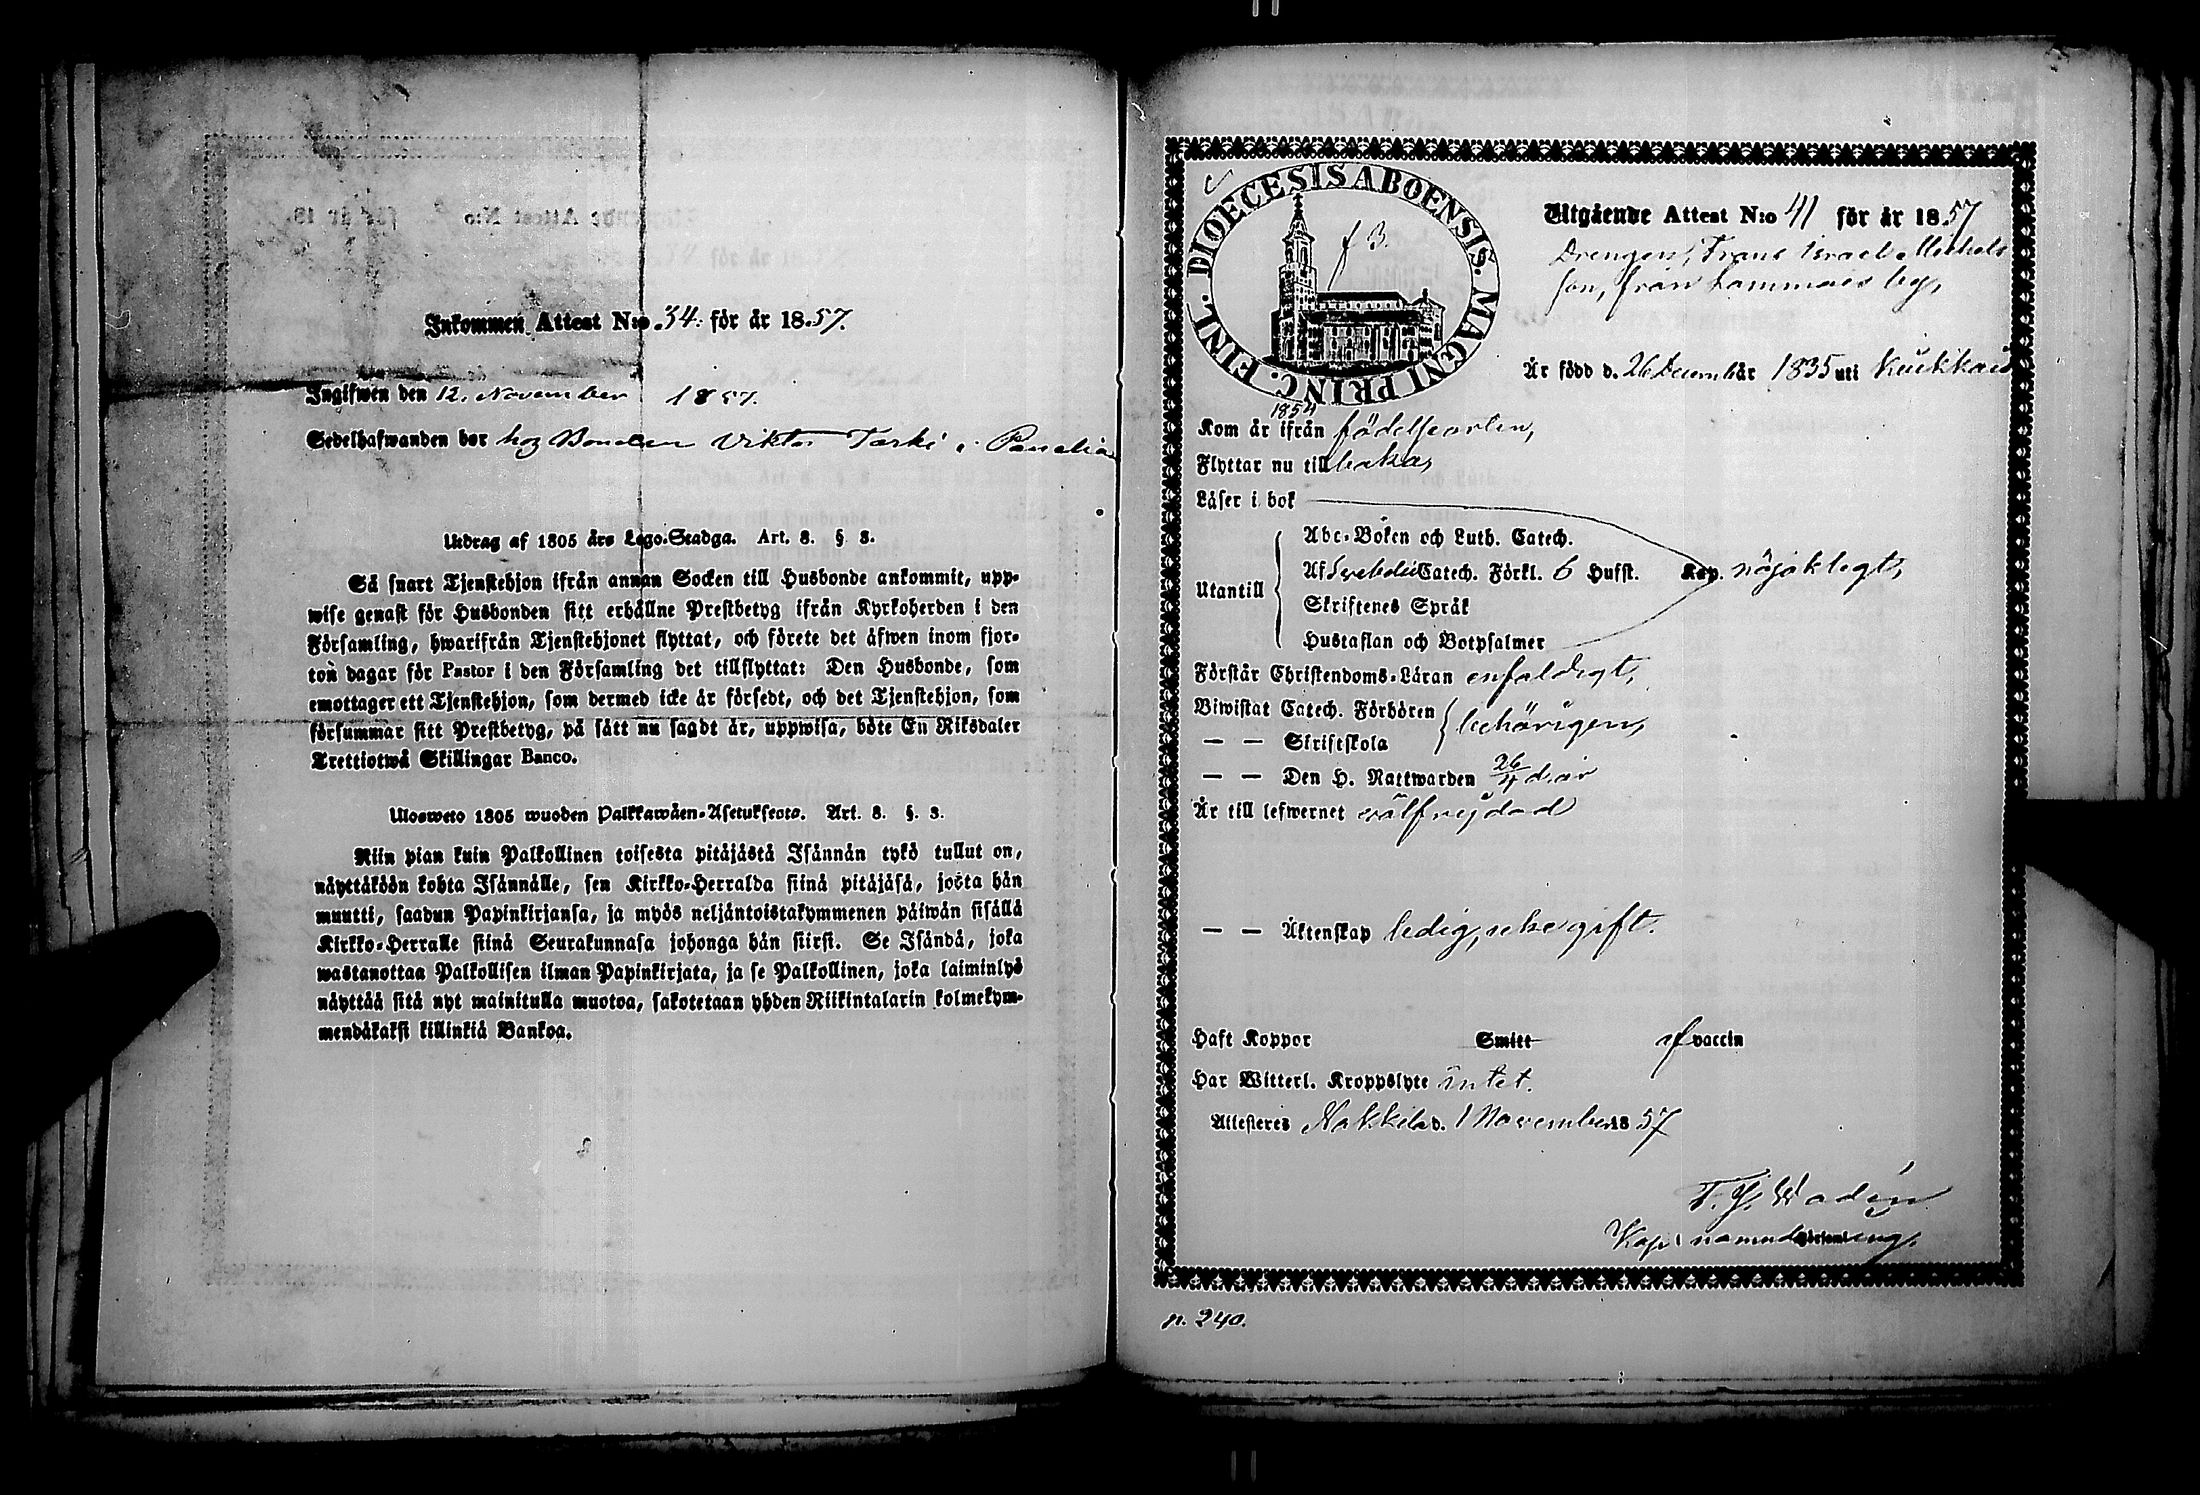 Inkommen Attest N:o 34. för år 1857.
Ingifwen den 12. November 1857.
Sedelhafwanden bor hoz Bonden Viktor Tarki i Panelia
Utdrag af 1805 års Lego-Stadga. Art. 8. §. 3.
Så snart Tjenstehjon ifrån annan Socken till Husbonde ankommit, upp-
wise genast för Husbonden sitt erhållne Prestbetyg ifrån Kyrkoherden i den
Församling, hwarifrån Tjenstehjonet flyttat, och förete det äfwen inom fjor-
ton dagar för Pastor i den Församling det tillflyttat: Den Husbonde, som
emottager ett Tjenstehjon, som dermed icke är försedt, och det Tjenstehjon, som
försummar sitt Prestbetyg, på sätt nu sagdt är, uppwisa, böte En Riksdaler
Trettiotwå Skillingar Banco.
Ulosweto 1805 wuoden Palkkawäen-Asetuksesta. Art. 8. §. 3.
Niin pian kuin Palkollinen toisesta pitäjästä Isännän tykö tullut on,
näyttäköön kohta Isännälle, sen Kirkko-Herralda siinä pitäjäsä, josta hän
muutti, saadun Papinkirjansa, ja myös neljäntoistakymmenen päiwän sisällä
Kirkko-Herralle siinä Seurakunnasa johonga hän siirsi. Se Isändä, joka
wastanottaa Palkollisen ilman Papinkirjata, ja se Palkollinen, joka laiminlyö
näyttää sitä nyt mainitulla muotoa, sakotetaan yhden Riikintalarin kolmekym-
mendäkaksi killinkiä Bankoa.
DIOECESIS ABOENSIS. MAGNI PRINC. FINL.
f 3.
Utgående Attest N:o 41 för år 1857
Drengen, Frans Israel Michels
son, från Lammais by,
Är född d. 26 Decembär 1835 uti Kiukkais
1854
Kom år ifrån födelseorten,
Flyttar nu till baka,
Läser i bok
Abc-Boken och Luth. Catech.
Utantill Af Svebelii Catech. Förkl. 6 Hufst. Kap. nöjaktigt,
Skriftenes Språk
Hustaflan och Botpsalmer
Förstår Christendoms-Läran enfaldigt,
Biwistat Catech. Förhören behörigen,
— — Skriftskola
— — Den H. Nattwarden 26/4 d. år
Är till lefwernet välfrejdad
— — Äktenskap ledig, icke gift.
Haft Koppor Smitt af vaccin
Har Witterl. Kroppslyte intet.
Attesteres Nakkila d. 1 November 1857
Kap. i nämnde Församling,
p. 240.